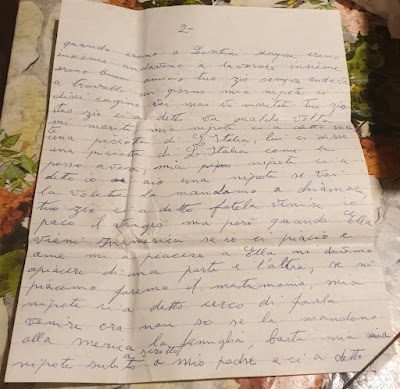 2-
quando erano a Lentini sempre erano
insieme andavano a lavorare insieme
erano buoni amici tuo zio sempre andava
a trovallo un giorno mia nipote ci
disse cugino voi mai vi maritate tuo zio
tuo zio ci a detto va qualchi volta
mi marito mia nipote ci a detto vo
una picciotta di L'Italia, lui ci disse
una picciotta di L'Italia come la
posso avere, mia nipote ci a
detto io aio una nipote se voi
la volete la mandamo a chiamari
tuo zio ci a detto fatela venire io
paco il viagio ma però quando Ella
vieni In merica se io ci piacio e
ame mi a piacere a Ella mi devono
apiacere di una parte e l'altra, se ni
piacemo faremo il matrimonia, mia
nipote ci a detto cerco di farla
venire ora non so se la mandono
alla merica la famiglia, basta mia
nipote subito a mio padre e ci a detto